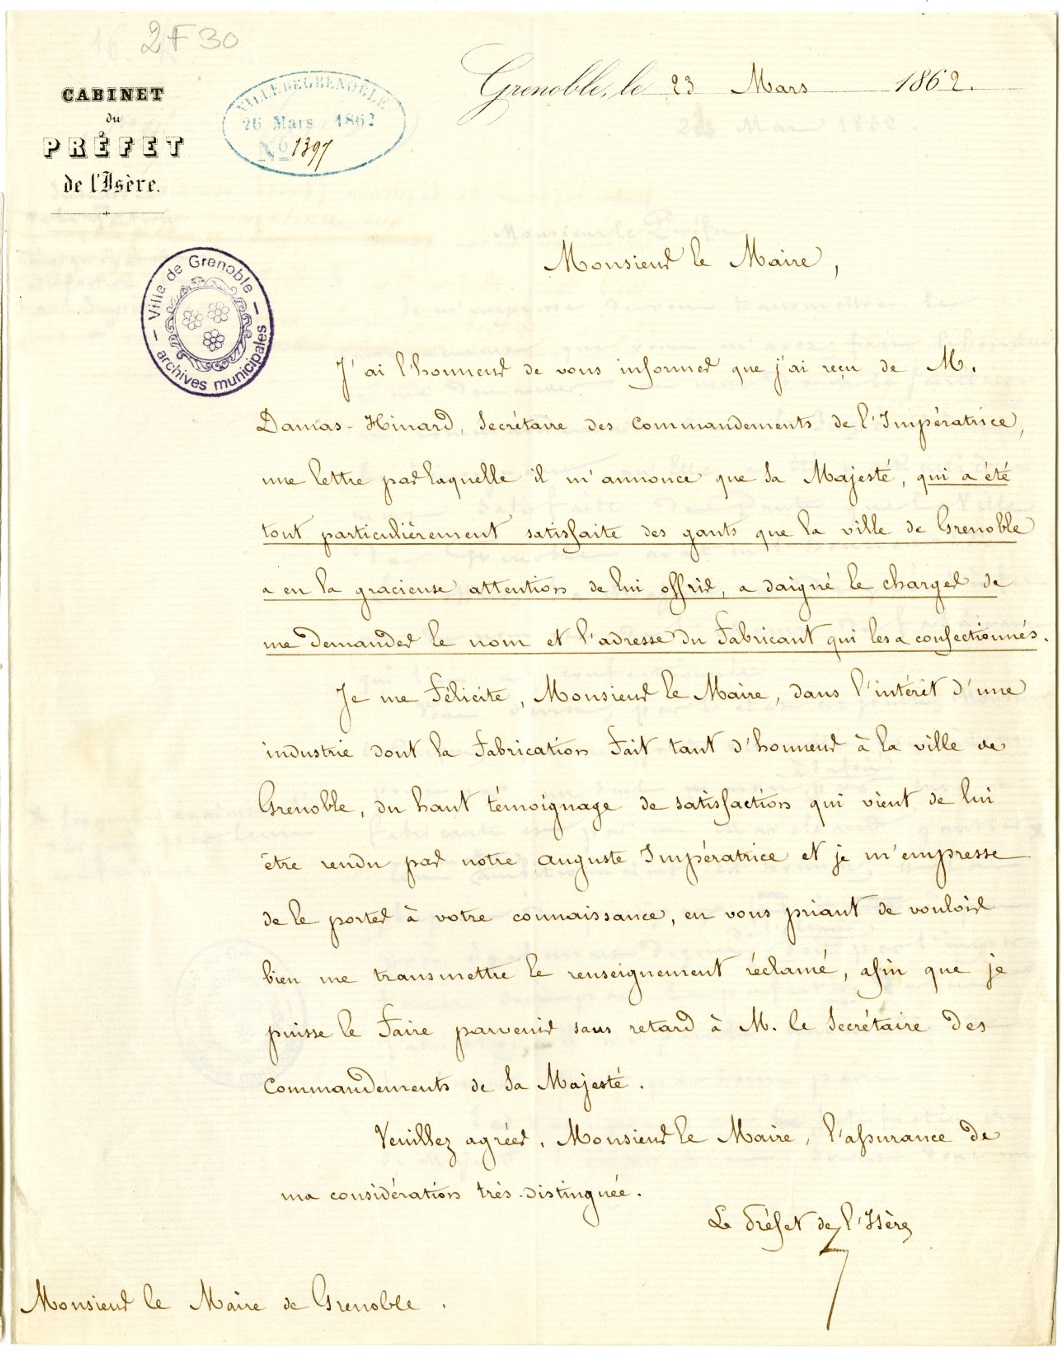 2 F 30
CABINET
du
PRÉFET
de l'Isère.
VILLE DE GRENOBLE
26 Mars 1862
No 1397
Grenoble, le 23 Mars 1862.
Ville de Grenoble
archives municipales
Monsieur le Maire,
J'ai l'honneur de vous informer que j'ai reçu de M.
Damas-Hinard, Secrétaire des Commandements de l'Impératrice,
une lettre par laquelle il m'annonce que Sa Majesté, qui a été
tout particulièrement satisfaite des gants que la ville de Grenoble
a eu la gracieuse attention de lui offrir, a daigné le charger de
me demander le nom et l'adresse du Fabricant qui les a confectionnés.
Je me félicite, Monsieur le Maire, dans l'intérêt d'une
industrie dont la Fabrication fait tant d'honneur à la ville de
Grenoble, du haut témoignage de satisfaction qui vient de lui
être rendu par notre auguste Impératrice et je m'empresse
de le porter à votre connaissance, en vous priant de vouloir
bien me transmettre le renseignement réclamé, afin que je
puisse le faire parvenir sans retard à M. le Secrétaire des
Commandements de Sa Majesté.
Veuillez agréer, Monsieur le Maire, l'assurance de
ma considération très-distinguée.
Le Préfet de l'Isère,
Monsieur le Maire de Grenoble.